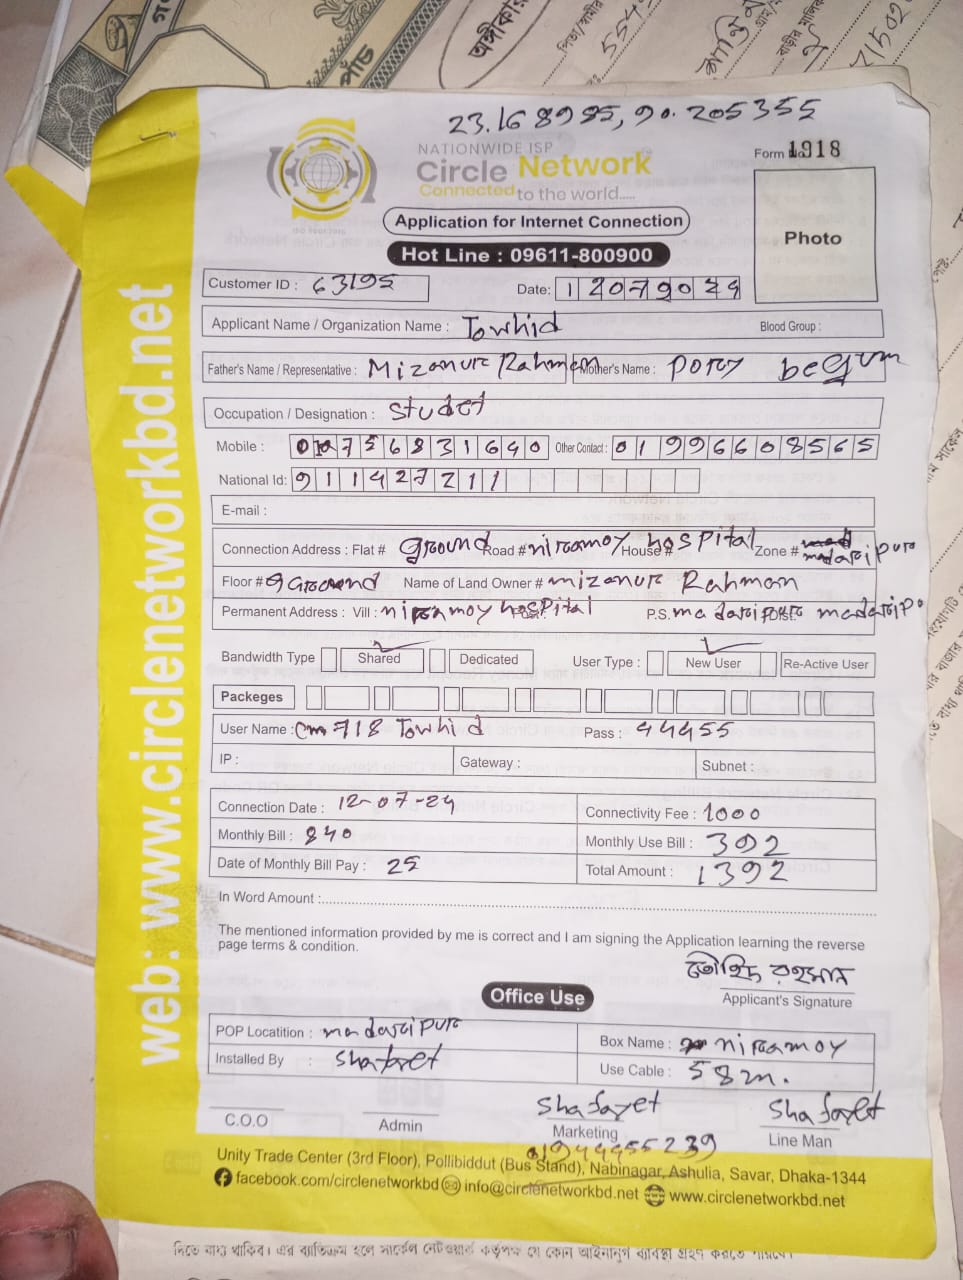 23.168995, 90.205355
NATIONWIDE ISP
Circle Network
Connected to the world.....
Form 1918
ISO 9001:2015
Application for Internet Connection
Photo
Hot Line : 09611-800900
Customer ID : 63195
Date: 12079024
Applicant Name / Organization Name : Towhid
Blood Group :
Father's Name / Representative : Mizanur Rahman Mother's Name : Pory begum
Occupation / Designation : Studet
Mobile : 01756831640 Other Contact : 01996608565
National Id: 9114272711
E-mail :
Connection Address : Flat # ground Road # niramoy House # hospital Zone # madaripur
Floor # Ground Name of Land Owner # mizanur Rahman
Permanent Address : Vill : niramoy hospital P.S. madaripur madaripo
Bandwidth Type Shared Dedicated User Type : New User Re-Active User
Packeges
User Name : cm718 Towhid Pass : 44455
IP : Gateway : Subnet :
Connection Date : 12-07-24 Connectivity Fee : 1000
Monthly Bill : 840 Monthly Use Bill : 392
Date of Monthly Bill Pay : 25 Total Amount : 1392
In Word Amount :
The mentioned information provided by me is correct and I am signing the Application learning the reverse
page terms & condition.
তৌহিদ রহমান
Applicant's Signature
Office Use
POP Locatition : madaripur Box Name : niramoy
Installed By : Shafayet Use Cable : 58m.
Shafayet Shafayet
C.O.O Admin Marketing Line Man
01944455239
Unity Trade Center (3rd Floor), Pollibiddut (Bus Stand), Nabinagar, Ashulia, Savar, Dhaka-1344
facebook.com/circlenetworkbd info@circlenetworkbd.net www.circlenetworkbd.net
web: www.circlenetworkbd.net
দিতে বাধ্য থাকিব। এর ব্যতিক্রম হলে সার্কেল নেটওয়ার্ক কর্তৃপক্ষ যে কোন আইনানুগ ব্যবস্থা গ্রহণ করতে পারবে।
অঙ্গীকার